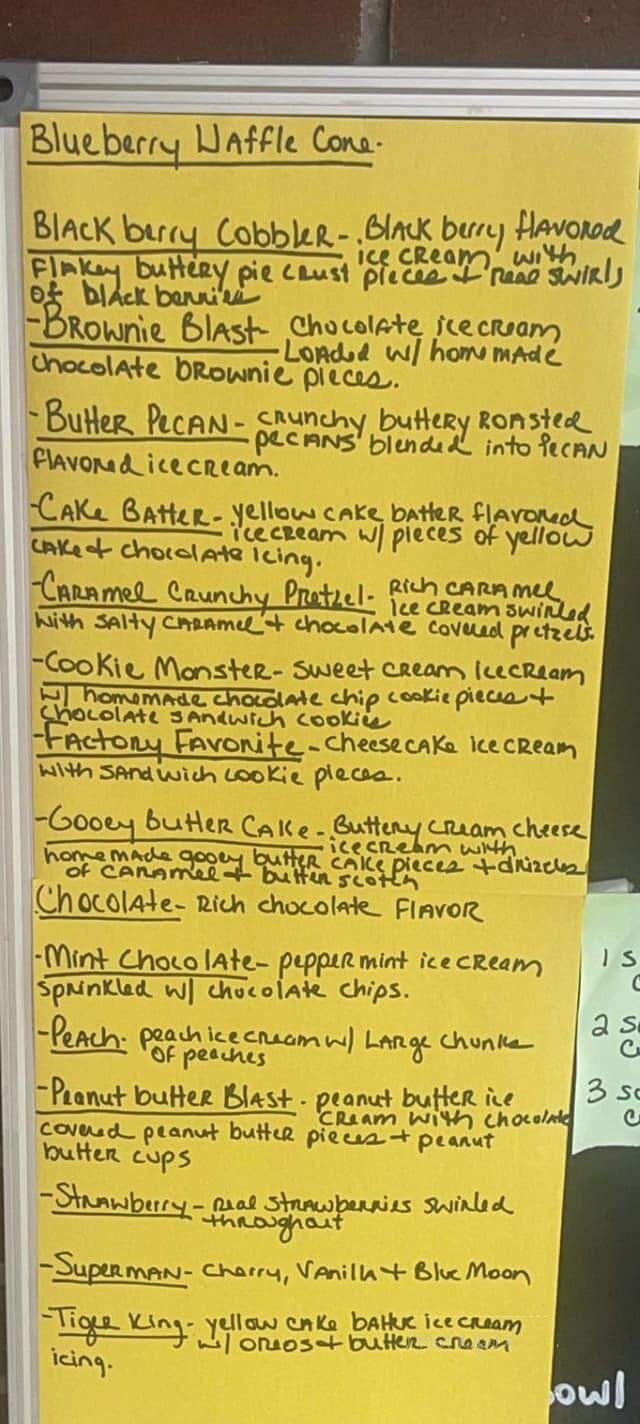 Blueberry Waffle Cone.
Blackberry Cobbler - Blackberry flavored
ice cream with
flakey buttery pie crust pieces + real swirls
of blackberries
- Brownie Blast - Chocolate ice cream
Loaded w/ homemade
chocolate brownie pieces.
- Butter Pecan - crunchy buttery roasted
pecans blended into pecan
flavored ice cream.
- Cake Batter - yellow cake batter flavored
ice cream w/ pieces of yellow
cake + chocolate icing.
- Caramel Crunchy Pretzel - Rich caramel
ice cream swirled
with salty caramel + chocolate covered pretzels.
- Cookie Monster - sweet cream ice cream
w/ homemade chocolate chip cookie pieces +
chocolate sandwich cookies
- Factory Favorite - cheesecake ice cream
with sandwich cookie pieces.
- Gooey Butter Cake - Buttery cream cheese
ice cream with
homemade gooey butter cake pieces + drizzles
of caramel + butter scotch
Chocolate - Rich chocolate flavor
- Mint Chocolate - peppermint ice cream
sprinkled w/ chocolate chips.
- Peach - peach ice cream w/ Large chunks
of peaches
- Peanut butter Blast - peanut butter ice
cream with chocolate
covered peanut butter pieces + peanut
butter cups
- Strawberry - real strawberries swirled
throughout
- Superman - Cherry, Vanilla + Blue Moon
- Tiger King - yellow cake batter ice cream
w/ oreos + butter cream
icing.
1 S
2 S
3 Sc
owl